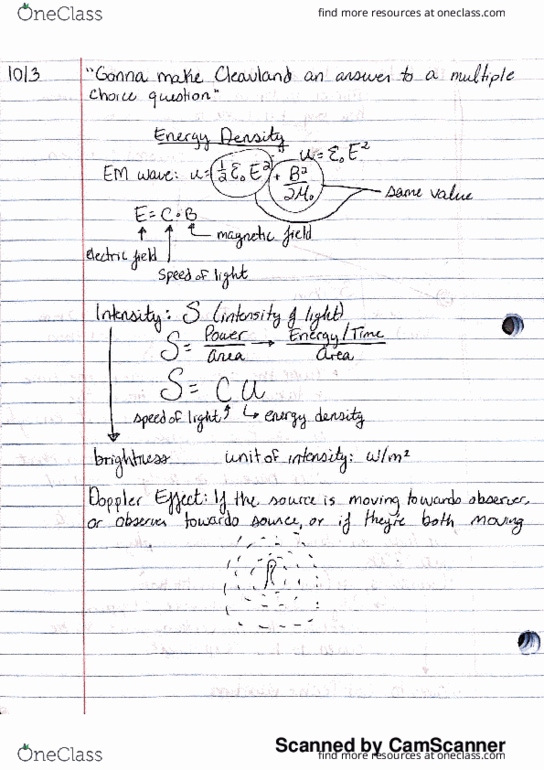 OneClass
find more resources at oneclass.com
10/3
"Gonna make Cleavland an answer to a multiple
choice question"
Energy Density
u = ε₀E²
EM wave: u = ½ε₀E² + B²/2μ₀
same value
E = C · B
magnetic field
electric field
speed of light
Intensity: S (intensity of light)
S = Power/Area → Energy/Time/Area
S = C u
speed of light energy density
brightness unit of intensity: W/m²
Doppler Effect: If the source is moving towards observer,
or observer towards source, or if they're both moving
Scanned by CamScanner
OneClass
find more resources at oneclass.com